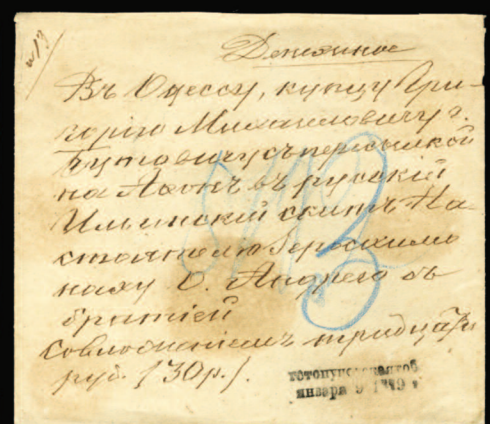 № 13
Денежное
Въ Одессу, купцу Гри-
горію Михаиловичу г.
Бутовичу съ пересылкой
на Аѳонъ въ русскій
Ильинскій скитъ На-
стоятелю Іеросхимо
наху О. Андрею съ
братіей
со вложеніемъ тридцати
руб. /30 р./.
января 9 1879